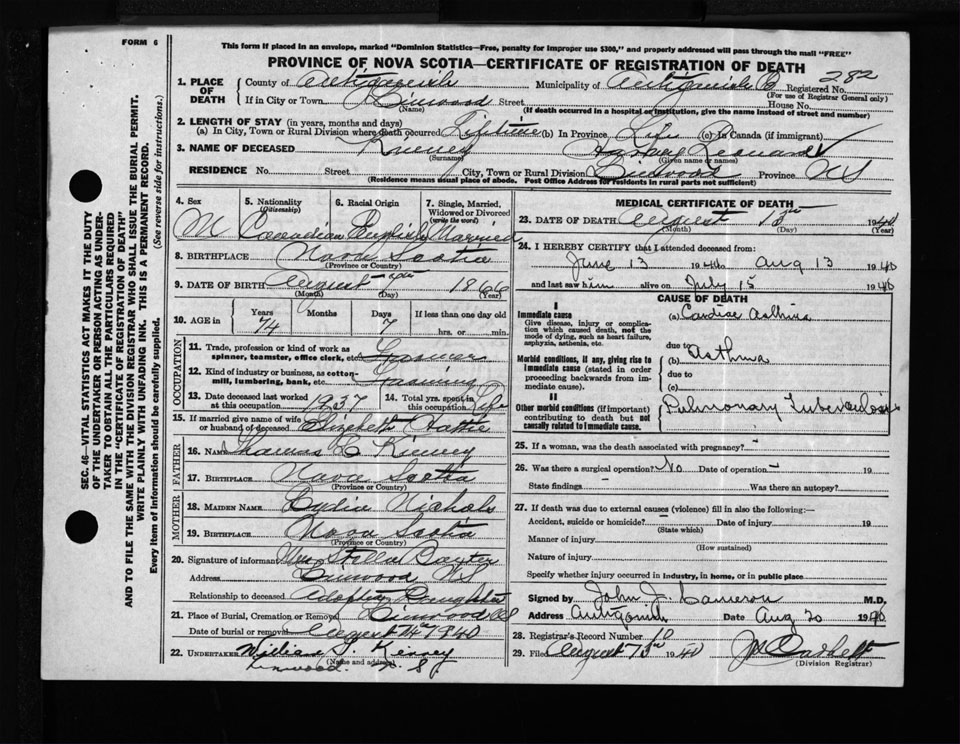 FORM 6
This form if placed in an envelope, marked "Dominion Statistics—Free, penalty for improper use $300," and properly addressed will pass through the mail "FREE"
PROVINCE OF NOVA SCOTIA—CERTIFICATE OF REGISTRATION OF DEATH
282
1. PLACE OF DEATH
County of Antigonish Municipality of Antigonish Co Registered No.
(For use of Registrar General only)
If in City or Town Linwood Street House No.
(Name) (If death occurred in a hospital or institution, give the name instead of street and number)
2. LENGTH OF STAY (in years, months and days)
(a) In City, Town or Rural Division where death occurred Lifetime (b) In Province Life (c) In Canada (if immigrant)
3. NAME OF DECEASED Kinney Leonard
(Surname) (Given name or names)
RESIDENCE No. Street City, Town or Rural Division Linwood Province NS
(Residence means usual place of abode. Post Office Address for residents in rural parts not sufficient)
4. Sex 5. Nationality (Citizenship) 6. Racial Origin 7. Single, Married, Widowed or Divorced (write the word)
M Canadian English Married
8. BIRTHPLACE Nova Scotia
(Province or Country)
9. DATE OF BIRTH August 7 1866
(Month) (Day) (Year)
10. AGE in Years Months Days If less than one day old
74 7 hrs. or min.
OCCUPATION
11. Trade, profession or kind of work as spinner, teamster, office clerk, etc. Farmer
12. Kind of industry or business, as cotton-mill, lumbering, bank, etc. Farming
13. Date deceased last worked at this occupation 1937 14. Total yrs. spent in this occupation Life
15. If married give name of wife or husband of deceased Elizabeth Hattie
FATHER
16. NAME Thomas C Kinney
17. BIRTHPLACE Nova Scotia
MOTHER
18. MAIDEN NAME Lydia Nichols
19. BIRTHPLACE Nova Scotia
(Province or Country)
20. Signature of informant Mrs Stella Baxter
Address Linwood NS
Relationship to deceased Adopted Daughter
21. Place of Burial, Cremation or Removal Linwood NS
Date of burial or removal August 14th 1940
22. UNDERTAKER William J. Kinney
(Name and address)
Linwood. N. S.
MEDICAL CERTIFICATE OF DEATH
23. DATE OF DEATH August 13th 1940
(Month) (Day) (Year)
24. I HEREBY CERTIFY that I attended deceased from:
June 13 1940 to Aug 13 1940
and last saw him alive on July 15 1940
CAUSE OF DEATH
I
Immediate cause
Give disease, injury or complication which caused death, not the mode of dying, such as heart failure, asphyxia, asthenia, etc.
(a) Cardiac Asthma
due to
Morbid conditions, if any, giving rise to immediate cause (stated in order proceeding backwards from immediate cause).
(b) Asthma
due to
(c)
II
Other morbid conditions (if important) contributing to death but not causally related to immediate cause.
Pulmonary Tuberculosis
25. If a woman, was the death associated with pregnancy? -
26. Was there a surgical operation? No Date of operation - 19
State findings - Was there an autopsy?
27. If death was due to external causes (violence) fill in also the following:—
Accident, suicide or homicide? Date of injury 19
(State which)
Manner of injury
(How sustained)
Nature of injury
Specify whether injury occurred in industry, in home, or in public place
Signed by John J. Cameron M.D.
Address Antigonish Date Aug 20 1940
28. Registrar's Record Number 10
29. Filed August 1940
(Division Registrar)
SEC. 46—VITAL STATISTICS ACT MAKES IT THE DUTY
OF THE UNDERTAKER OR PERSON ACTING AS UNDER-
TAKER TO OBTAIN ALL THE PARTICULARS REQUIRED
IN THE "CERTIFICATE OF REGISTRATION OF DEATH"
AND TO FILE THE SAME WITH THE DIVISION REGISTRAR WHO SHALL ISSUE THE BURIAL PERMIT.
WRITE PLAINLY WITH UNFADING INK. THIS IS A PERMANENT RECORD.
Every item of information should be carefully supplied. (See reverse side for instructions.)